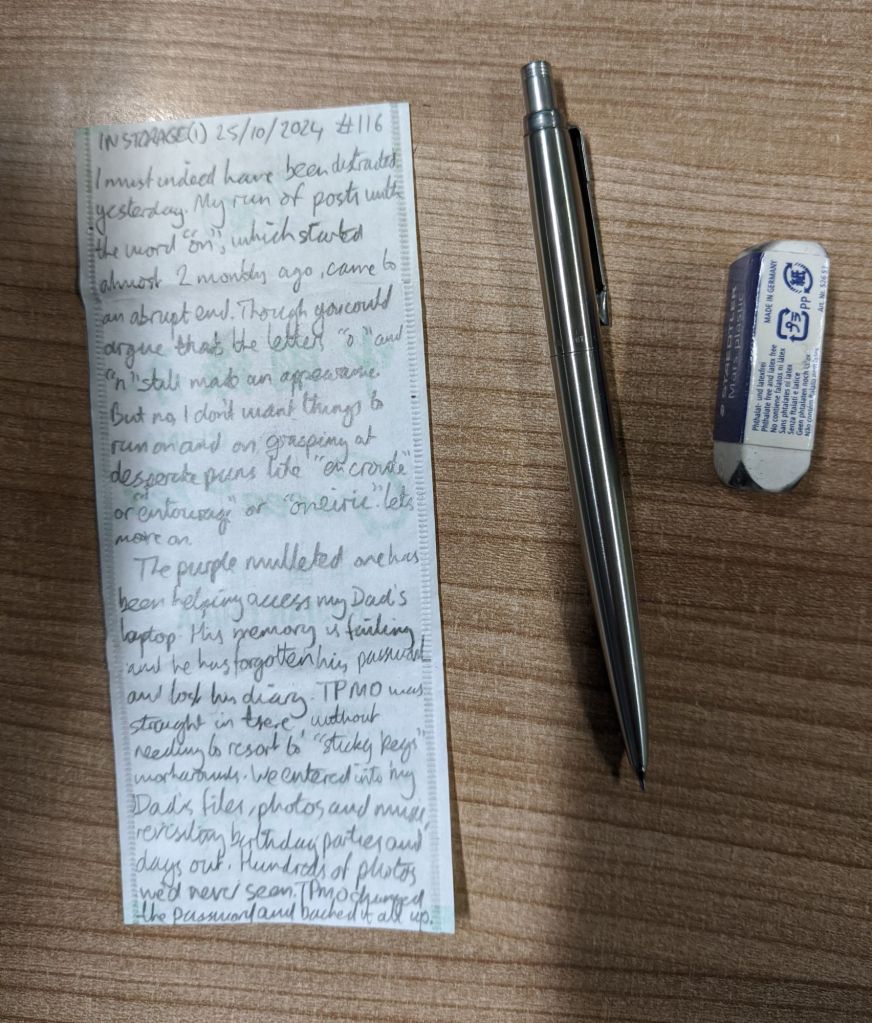 IN STORAGE(1) 25/10/2024 #116
I must indeed have been distracted
yesterday. My run of posts with
the word "on", which started
almost 2 months ago, came to
an abrupt end. Though you could
argue that the letter "o" and
"n" still made an appearance.
But no, I don't want things to
run on and on grasping at
desperate puns like "en croute"
or "entourage" or "oneiric". Lets
move on.
The purple mulleted one has
been helping access my Dad's
laptop. His memory is failing
and he has forgotten his password
and lost his diary. TPMO was
straight in there without
needing to resort to "sticky keys"
workarounds. We entered into my
Dad's files, photos and music
revisiting birthday parties and
days out. Hundreds of photos
we'd never seen. TPMO changed
the password and backed it all up.
STAEDTLER
Mars plastic
Phthalat- und latexfrei
Phthalate free and latex free
No contiene ftalatos ni látex
Sans phtalates ni latex
Senza ftalati e lattice
Geen phtalaten noch latex
MADE IN GERMANY
PP
紙
Art. Nr. 526 53